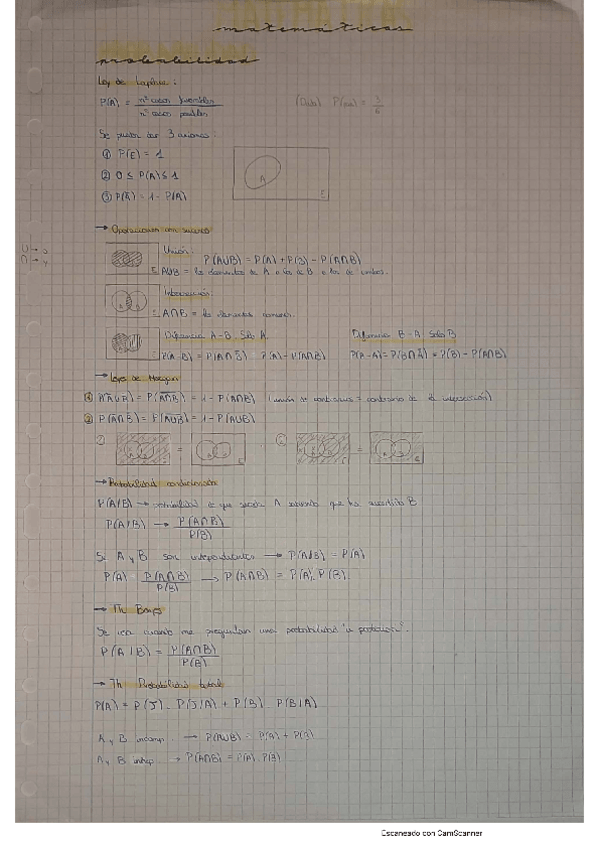 matemáticas
probabilidad
Ley de Laplace:
P(A) = nº casos favorables / nº casos posibles
(Dado) P(par) = 3/6
Se pueden dar 3 axiomas:
① P(E) = 1
② 0 ≤ P(A) ≤ 1
③ P(Ā) = 1 - P(A)
A
E
→ Operaciones con sucesos
U → o
∩ → y
Unión:
P(A∪B) = P(A) + P(B) - P(A∩B)
A∪B = los elementos de A o los de B o los de ambos.
Intersección:
A∩B = los elementos comunes.
Diferencia A-B. Solo A.
P(A-B) = P(A∩B̄) = P(A) - P(A∩B)
Diferencia B-A. Solo B
= P(B) - P(A∩B)
→ Leyes de Morgan
① P(Ā∪B̄) = P(A∩B)‾ = 1 - P(A∩B) (unión de contrarios = contrario de la intersección)
② P(Ā∩B̄) = P(A∪B)‾ = 1 - P(A∪B)
① = ② =
→ Probabilidad condicionada
P(A/B) → probabilidad de que suceda A sabiendo que ha sucedido B
P(A/B) → P(A∩B) / P(B)
Si A y B son independientes → P(A/B) = P(A)
P(A) = P(A∩B) / P(B) → P(A∩B) = P(A) · P(B)
→ Th Bayes
Se usa cuando me preguntan una probabilidad "a posteriori".
P(A/B) = P(A∩B) / P(B)
→ Th Probabilidad total
A y B incomp. → P(A∪B) = P(A) + P(B)
A y B indep. → P(A∩B) = P(A) · P(B)
Escaneado con CamScanner